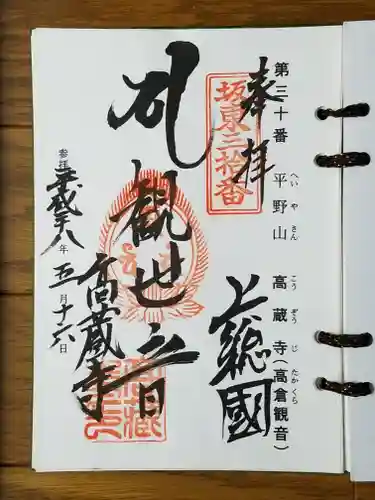 第三十番 平野山 高蔵寺(高倉観音)
へいやさん こうぞうじ たかくら
奉拝
坂東三拾番
上総國
観世音
高蔵寺
参拝 平成二八年 五月十六日